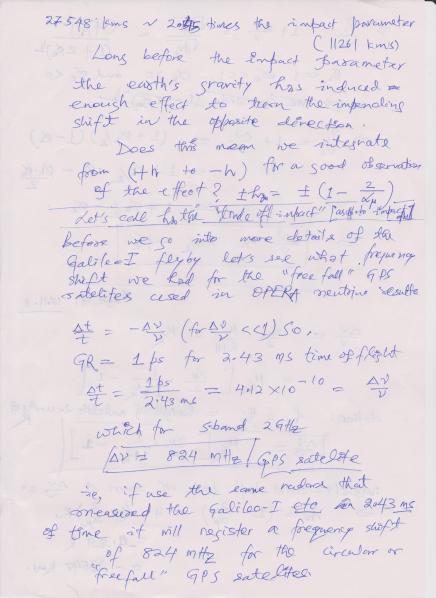 27548 kms ~ 2.45 times the impact parameter
(11261 kms)
Long before the impact parameter
the earth's gravity has induced
enough effect to turn the impending
shift in the opposite direction.
Does this mean we integrate
from (+h to -h) for a good observation
of the effect? ± = ± (1 - 2/α)
Let's call the "time of impact"
before we go into more details of the
Galileo-I flyby let's see what frequency
shift we had for the "free fall" GPS
satellites used in OPERA neutrino results
Δt/t = -Δν/ν (for Δν/ν <<1) So,
GR = 1 ps for 2.43 ms time of flight
Δt/t = 1ps/2.43 ms = 4.12 × 10^-10 = Δν/ν
which for s-band 2GHz
Δν = 824 mHz / GPS satellite
ie, if use the same radars that
measured the Galileo-I etc in 2.43 ms
of time it will register a frequency shift
of 824 mHz for the circular or
"free fall" GPS satellites.